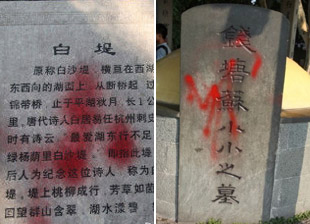 白堤
原称白沙堤，横亘在西湖
东西向的湖面上，从断桥起，过
锦带桥，止于平湖秋月，长1公
里。唐代诗人白居易任杭州刺史
时有诗云，"最爱湖东行不足，
绿杨荫里白沙堤。"即指此堤
后人为纪念这位诗人，称为白
堤。堤上桃柳成行，芳草如茵
回望群山含翠，湖水漾碧
錢塘蘇小小之墓